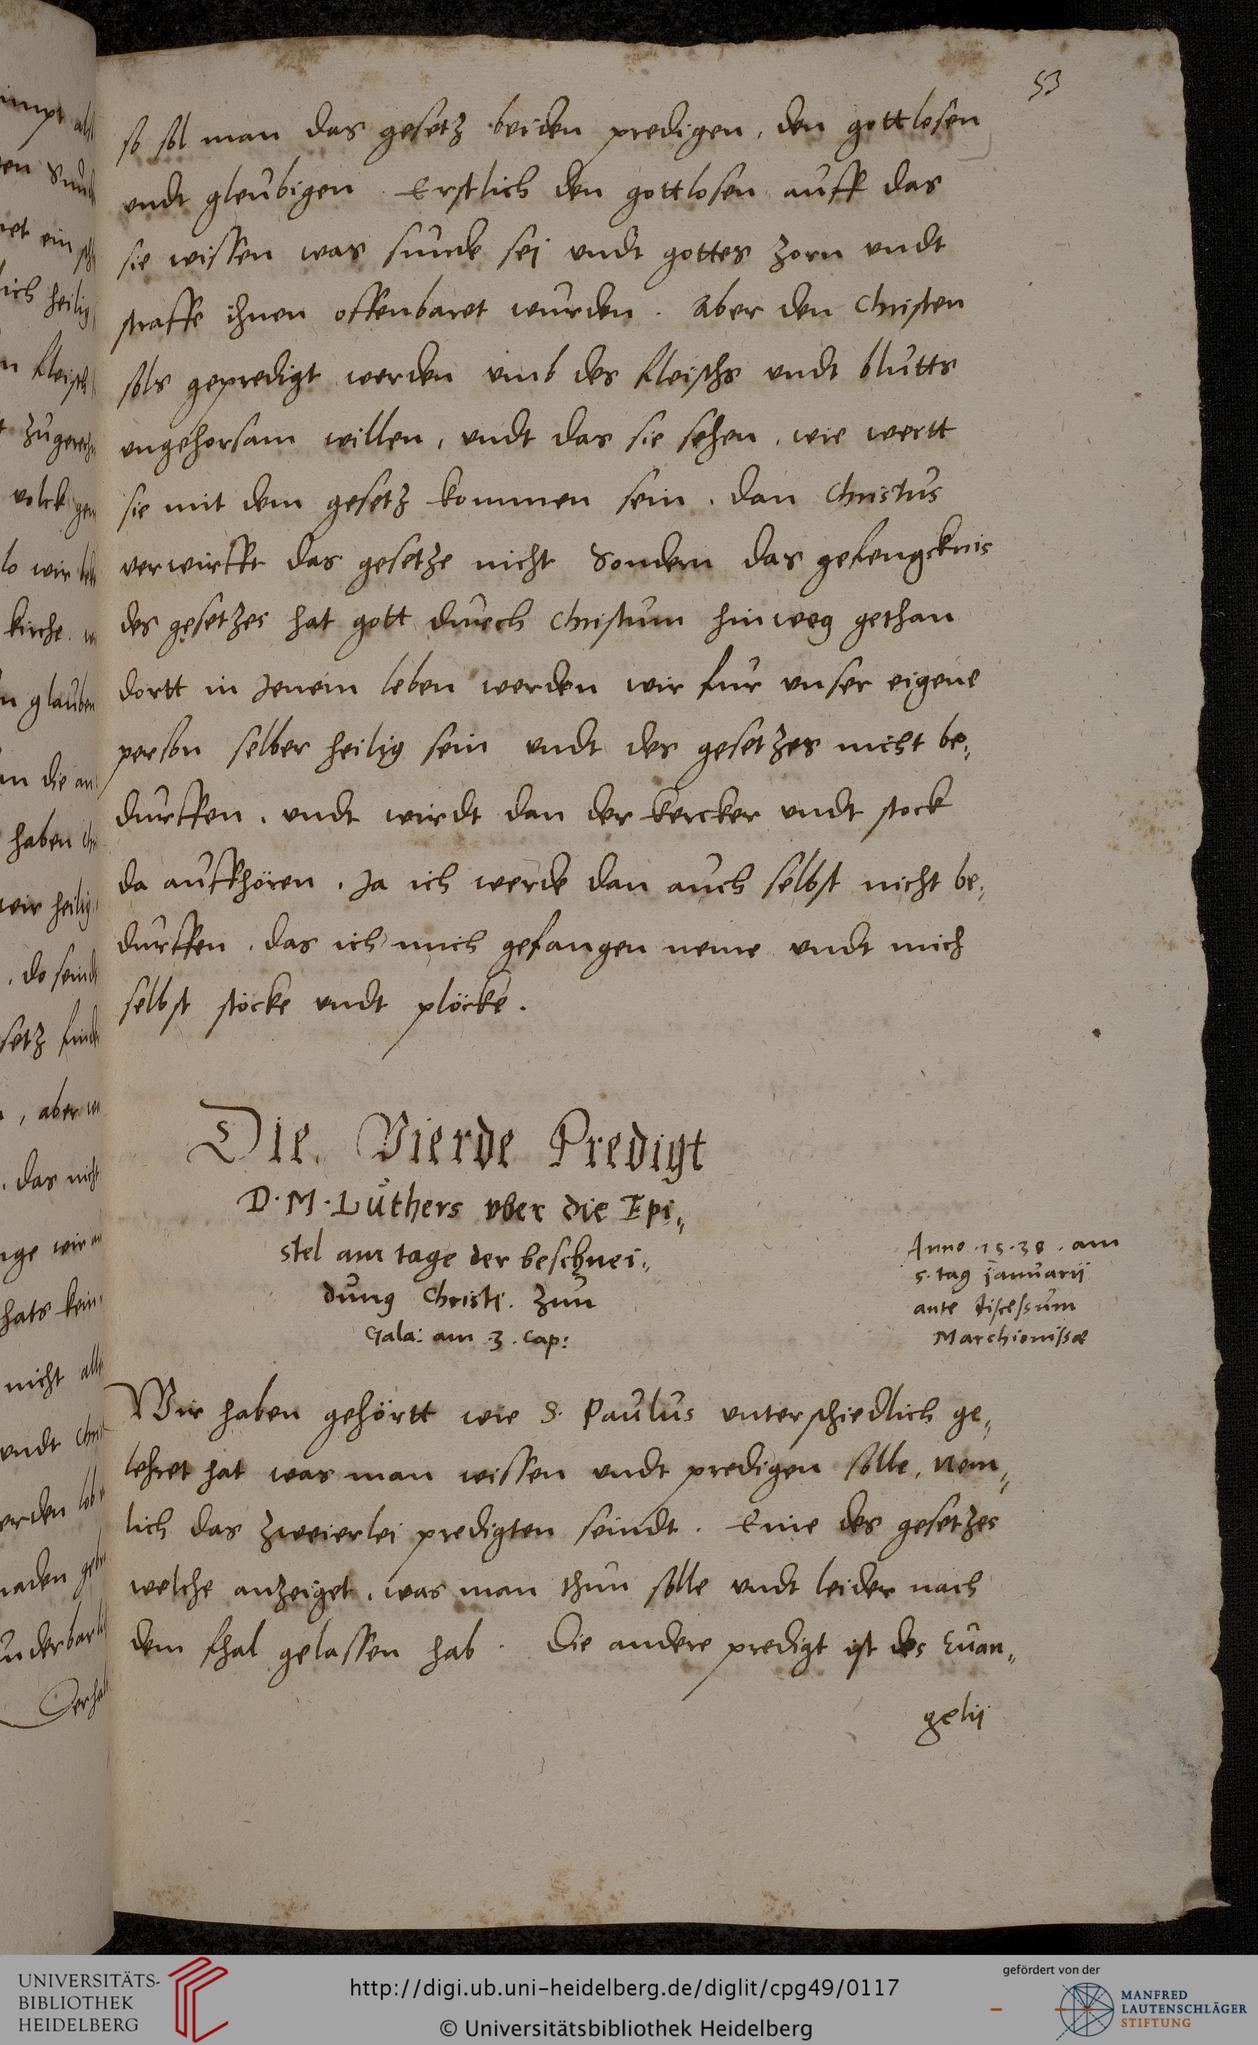 53
so sol man das gesetz beiden predigen, den gottlosen
undt gleubigen. Erstlich den gottlosen auff das
sie wissen was sunde sej undt gottes zorn undt
straffe ihnen offenbaret wurden. Aber den Christen
sols gepredigt werden umb des fleischs undt blutts
ungehorsam willen, undt das sie sehen, wie wertt
sie mit dem gesetz kommen sein. dan Christus
verwirfft das gesetze nicht Sondern das gefengcknis
des gesetzes hat gott durch Christum hinweg gethan
dortt in Jenem leben werden wir fur unser eigene
person selber heilig sein undt des gesetzes nicht be„
durffen, undt wirdt dan der kercker undt stock
da auffhören. Ja ich werde dan auch selbst nicht be„
durffen, das ich mich gefangen neme undt mich
selbst stöcke undt plöcke.
Die Vierde Predigt
D. M. Luthers uber die Epi„
stel am tage der beschnei„
dung Christi. Zun
Gala: am .3. Cap:
Anno .15.38. am
5. tag januarii
ante discessum
Marchionissæ
Wir haben gehörtt wie S. Paulus unterschiedlich ge„
lehret hat was man wissen undt predigen solle, Nem„
lich das zweierlei predigten seindt. Eine des gesetzes
welche anzeiget, was man thun solle undt leider nach
dem fhal gelassen hab. Die andere predigt ist des Euan„
gelij
UNIVERSITÄTS-
BIBLIOTHEK
HEIDELBERG
http://digi.ub.uni-heidelberg.de/diglit/cpg49/0117
© Universitätsbibliothek Heidelberg
gefördert von der
MANFRED
LAUTENSCHLÄGER
STIFTUNG